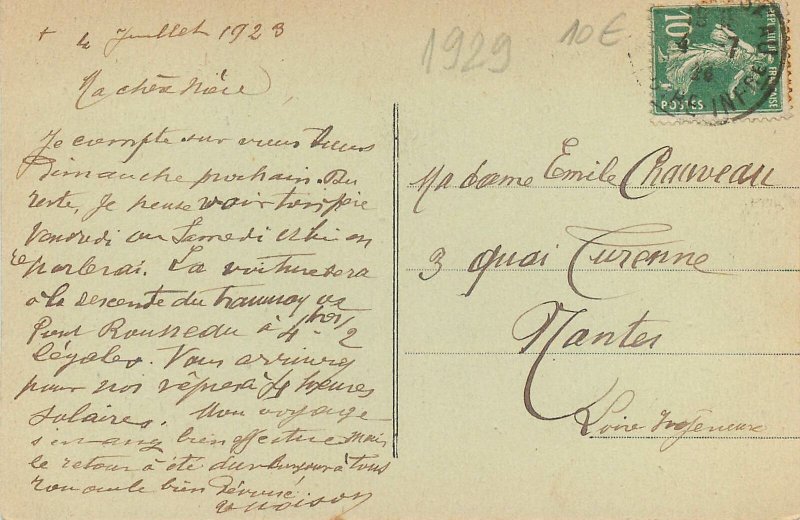 + 4 Juillet 1923
1929 10€
Ma chère Mère
Je compte sur vous tous
Dimanche prochain. Du
reste, Je pense voir ton père
Vendredi ou Samedi et lui en
reparlerai. La voiture sera
à la descente du tramway
Pont Rousseau à 4 hrs 1/2
légales. Vous arriverez
pour nos vêpres à 4 heures
solaires. Mon voyage
bien effectué mais
le retour à été dur
bien
10c
POSTES
INFRE
Madame Emile Chauveau
3 quai Turenne
Nantes
Loire Inférieure